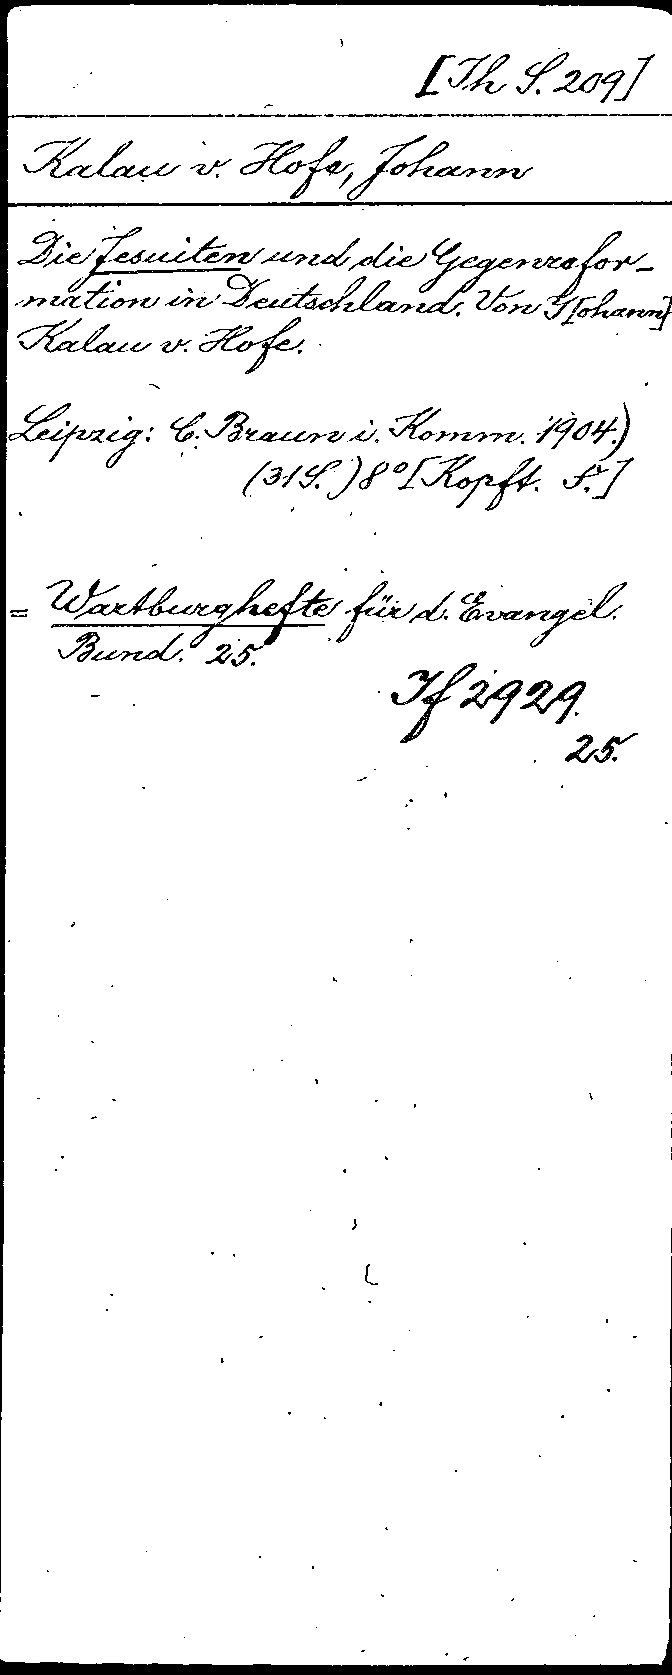 [Th S. 209]
Kalau v. Hofe, Johann
Die Jesuiten und die Gegenrefor-
mation in Deutschland. Von J[ohann]
Kalau v. Hofe.
Leipzig: C. Braun i. Komm. 1904.)
(31 S.) 8° [Kopft.]
= Wartburghefte für d. Evangel.
Bund. 25.
If 2929.
25.